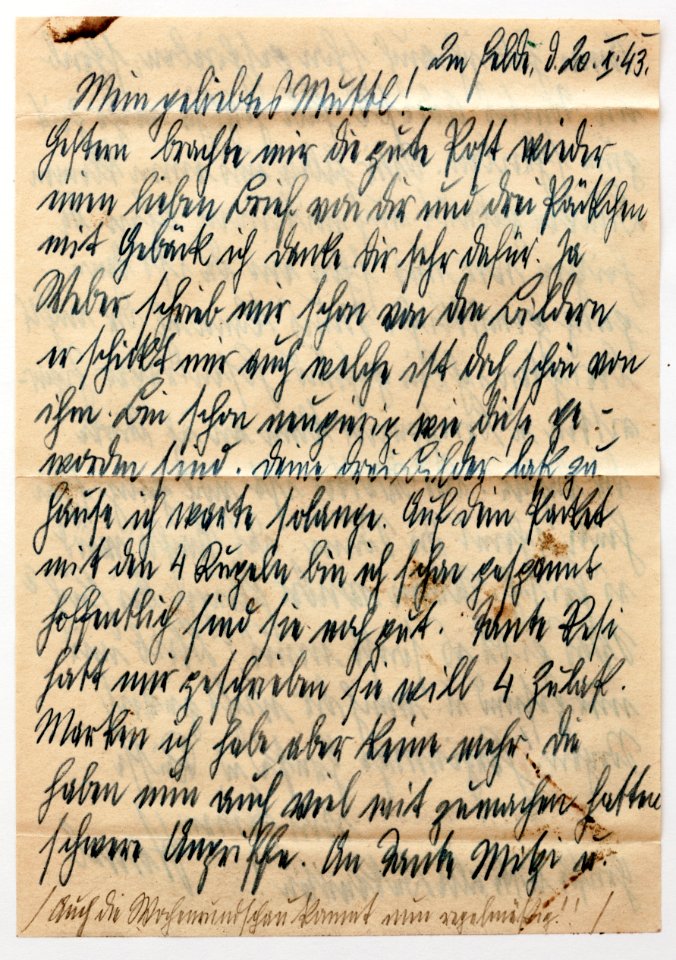 Im Felde, d. 20.X.43.
Mein geliebtes Muttl!
Gestern brachte mir die gute Post wieder
einen lieben Brief von dir und drei Päckchen
mit Gebäck ich danke dir sehr dafür. Ja
Weber schrieb mir schon von den Bildern
er schickt mir auch welche ist doch schön von
ihm. Bin schon neugierig wie diese ge-
worden sind. Deine drei Bilder laß zu
Hause ich warte solange. Auf dein Packet
mit den 4 Kugeln bin ich schon gespannt
hoffentlich sind sie noch gut. Tante Resi
hatt mir geschrieben sie will 4 Zulaß.
Marken ich habe aber keine mehr. Die
haben nun auch viel mit zumachen hatten
schwere Angriffe. An Tante Mitzi u.
/ Auch die Wochenrundschau kommt nun regelmäßig!! /